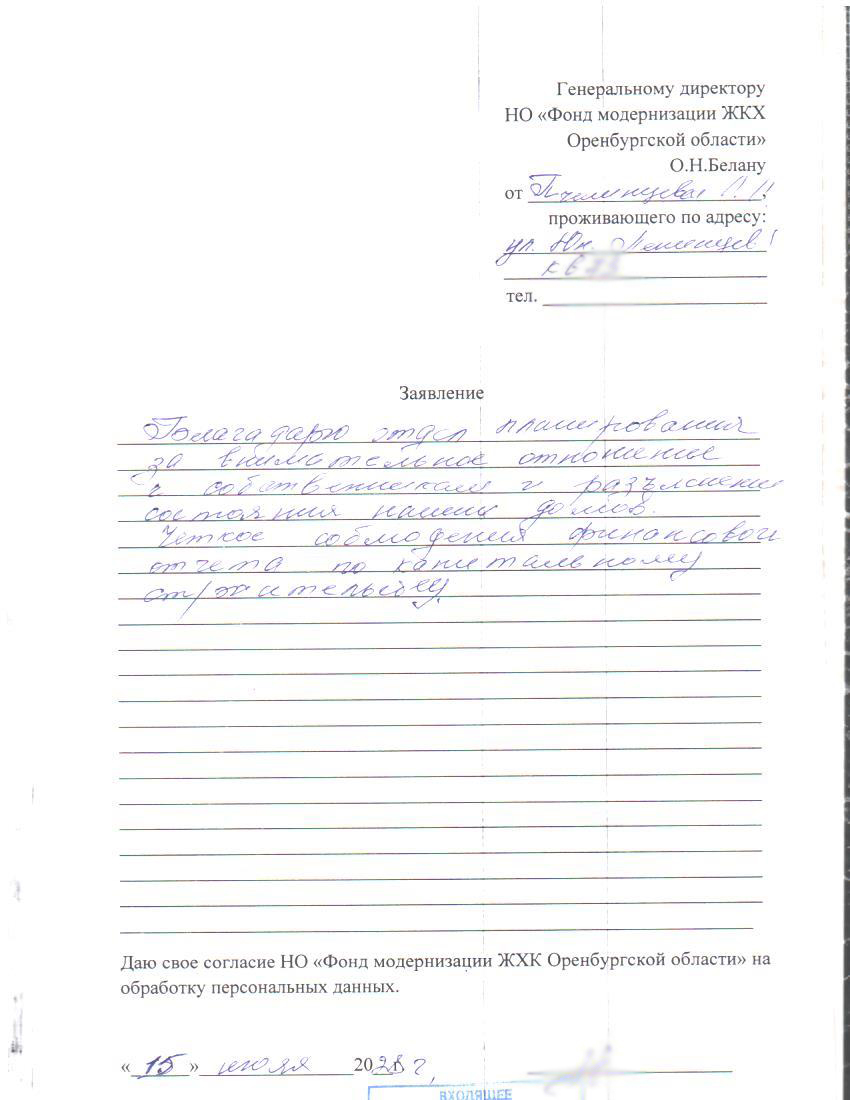 Генеральному директору
НО «Фонд модернизации ЖКХ
Оренбургской области»
О.Н.Белану
от
проживающего по адресу:
ул. Юн. Ленинцев
к 6
тел.
Заявление
Благадарю отдел планирования
за внимательное отношение
к собственникам и разъяснение
состояния наших домов.
Четкое соблюдения финансового
отчета по капитальному
Даю свое согласие НО «Фонд модернизации ЖХК Оренбургской области» на
обработку персональных данных.
«15» июля 20 г.
ВХОДЯЩЕЕ